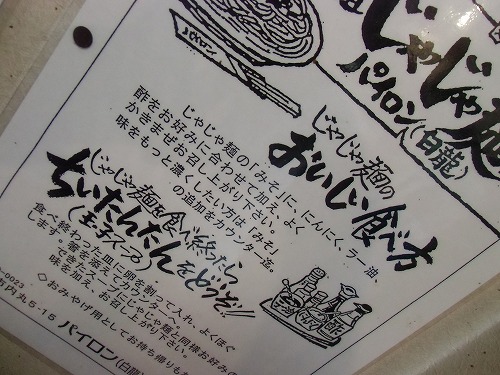 じゃじゃ麺
パイロン(白龍)
パイロン
じゃじゃ麺の
おいしい食べ方
じゃじゃ麺の「みそ」に、にんにく、ラー油、
酢をお好みに合わせて加え、よく
かきまぜお召し上がり下さい。
味をもっと濃くしたい方は「みそ」
の追加をカウンター
じゃじゃ麺を食べ終ったら、
ちいたんたんをどうぞ!!
(玉子スープ)
食べ終わった皿に卵を割って入れ、よくほぐ
します。箸を添えてカウンター
できたスープにじゃじゃ麺と同様お好みの
味を加え、お召し上がり下さい。
◇おみやげ用としてお持ち帰りも
-0023
内丸5-15 パイロン(白龍)